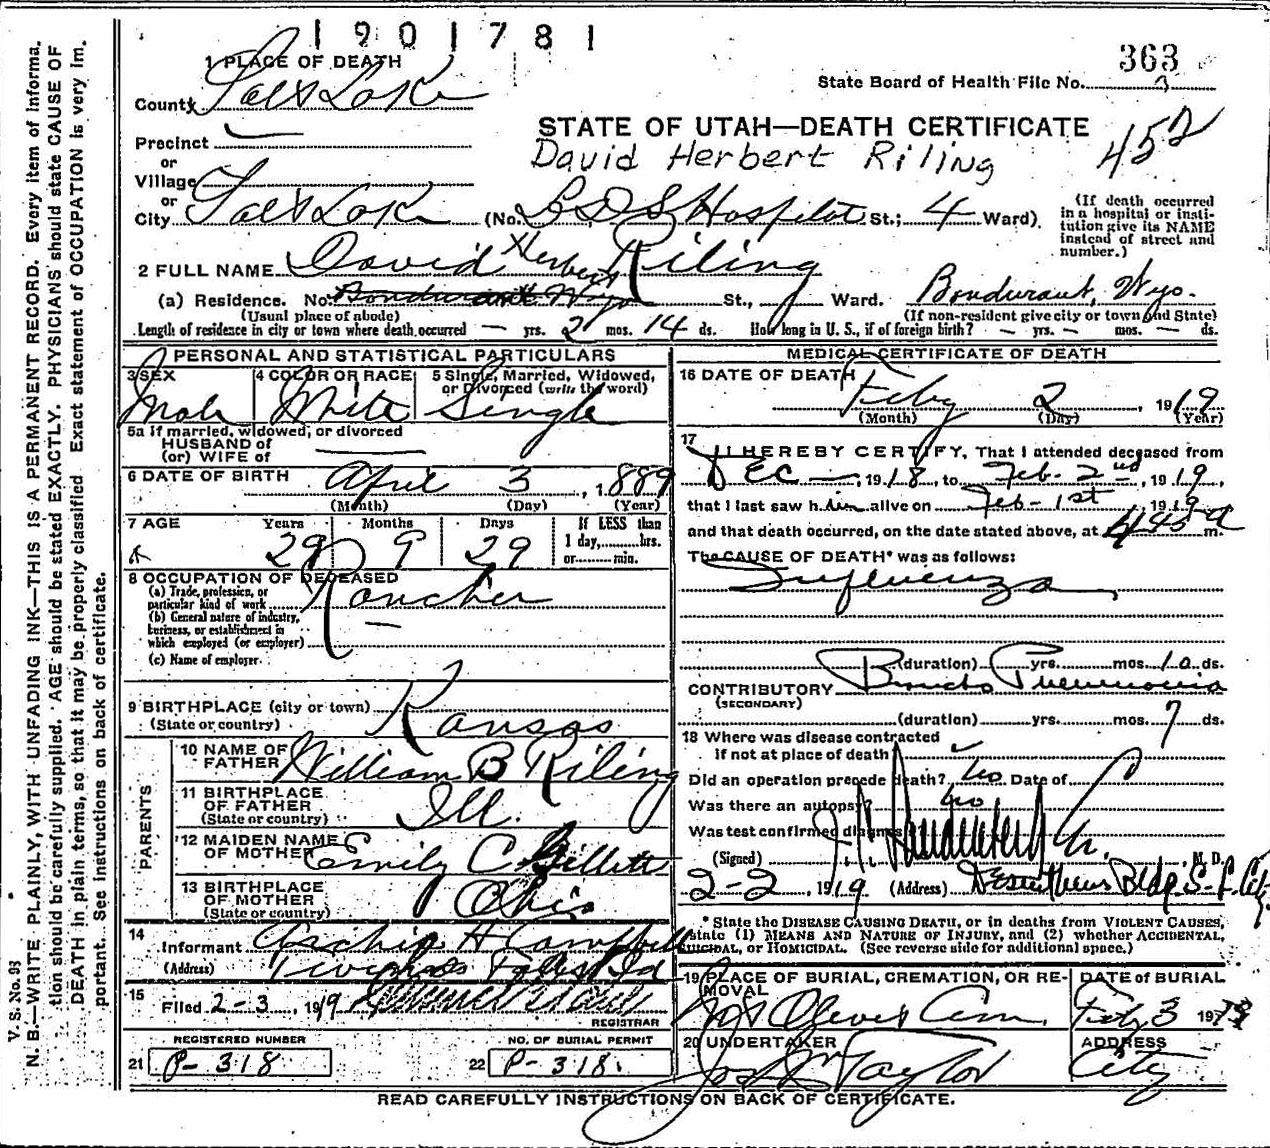 1901781
363
State Board of Health File No. 3
1 PLACE OF DEATH
County Salt Lake
STATE OF UTAH—DEATH CERTIFICATE
452
Precinct
David Herbert Riling
or
Village
or
City Salt Lake (No. L D S Hospital St.; 4 Ward)
(If death occurred in a hospital or insti-
tution give its NAME
instead of street and
number.)
2 FULL NAME David Herbert Riling
(a) Residence. No. Bondurant Wyo St., Ward. Bondurant, Wyo.
(Usual place of abode) (If non-resident give city or town and State)
Length of residence in city or town where death occurred — yrs. 2 mos. 14 ds. How long in U. S., if of foreign birth? — yrs. — mos. — ds.
PERSONAL AND STATISTICAL PARTICULARS
3 SEX Male
4 COLOR OR RACE White
5 Single, Married, Widowed,
or Divorced (write the word) Single
5a If married, widowed, or divorced
HUSBAND of
(or) WIFE of
6 DATE OF BIRTH April 3, 1889
(Month) (Day) (Year)
7 AGE Years 29 Months 9 Days 29
If LESS than
1 day, hrs.
or min.
8 OCCUPATION OF DECEASED
(a) Trade, profession, or
particular kind of work Rancher
(b) General nature of industry,
business, or establishment in
which employed (or employer) —
(c) Name of employer
9 BIRTHPLACE (city or town)
(State or country) Kansas
PARENTS
10 NAME OF
FATHER William B Riling
11 BIRTHPLACE
OF FATHER
(State or country) Ill.
12 MAIDEN NAME
OF MOTHER Emily C Gillett
13 BIRTHPLACE
OF MOTHER
(State or country) Ohio
14
Informant Archie H Campbell
(Address) Twin Falls Ida
15
Filed 2-3, 1919
REGISTRAR
REGISTERED NUMBER
21 P-318
NO. OF BURIAL PERMIT
22 P-318.
MEDICAL CERTIFICATE OF DEATH
16 DATE OF DEATH Feby 2, 1919
(Month) (Day) (Year)
17
I HEREBY CERTIFY, That I attended deceased from
DEC —, 1918, to Feb. 2nd, 1919,
that I last saw him alive on Feb-1st 1919
and that death occurred, on the date stated above, at 445 a m.
The CAUSE OF DEATH* was as follows:
Influenza
(duration) yrs. mos. 10 ds.
CONTRIBUTORY Broncho Pneumonia
(SECONDARY)
(duration) yrs. mos. 7 ds.
18 Where was disease contracted
if not at place of death
Did an operation precede death? No Date of
Was there an autopsy? no
Was test confirmed diagnosis?
(Signed) M. D.
2-2 1919 (Address) Deseret News Bldg S. L. City
* State the DISEASE CAUSING DEATH, or in deaths from VIOLENT CAUSES,
state (1) MEANS AND NATURE OF INJURY, and (2) whether ACCIDENTAL,
SUICIDAL, or HOMICIDAL. (See reverse side for additional space.)
19 PLACE OF BURIAL, CREMATION, OR RE-
MOVAL Mt Olivet Cem.
DATE of BURIAL
Feby 3 1919
20 UNDERTAKER
Jos Wm Taylor
ADDRESS
City
READ CAREFULLY INSTRUCTIONS ON BACK OF CERTIFICATE.
V. S. No. 93
N. B.—WRITE PLAINLY, WITH UNFADING INK—THIS IS A PERMANENT RECORD. Every item of informa-
tion should be carefully supplied. AGE should be stated EXACTLY. PHYSICIANS should state CAUSE OF
DEATH in plain terms, so that it may be properly classified. Exact statement of OCCUPATION is very im-
portant. See instructions on back of certificate.